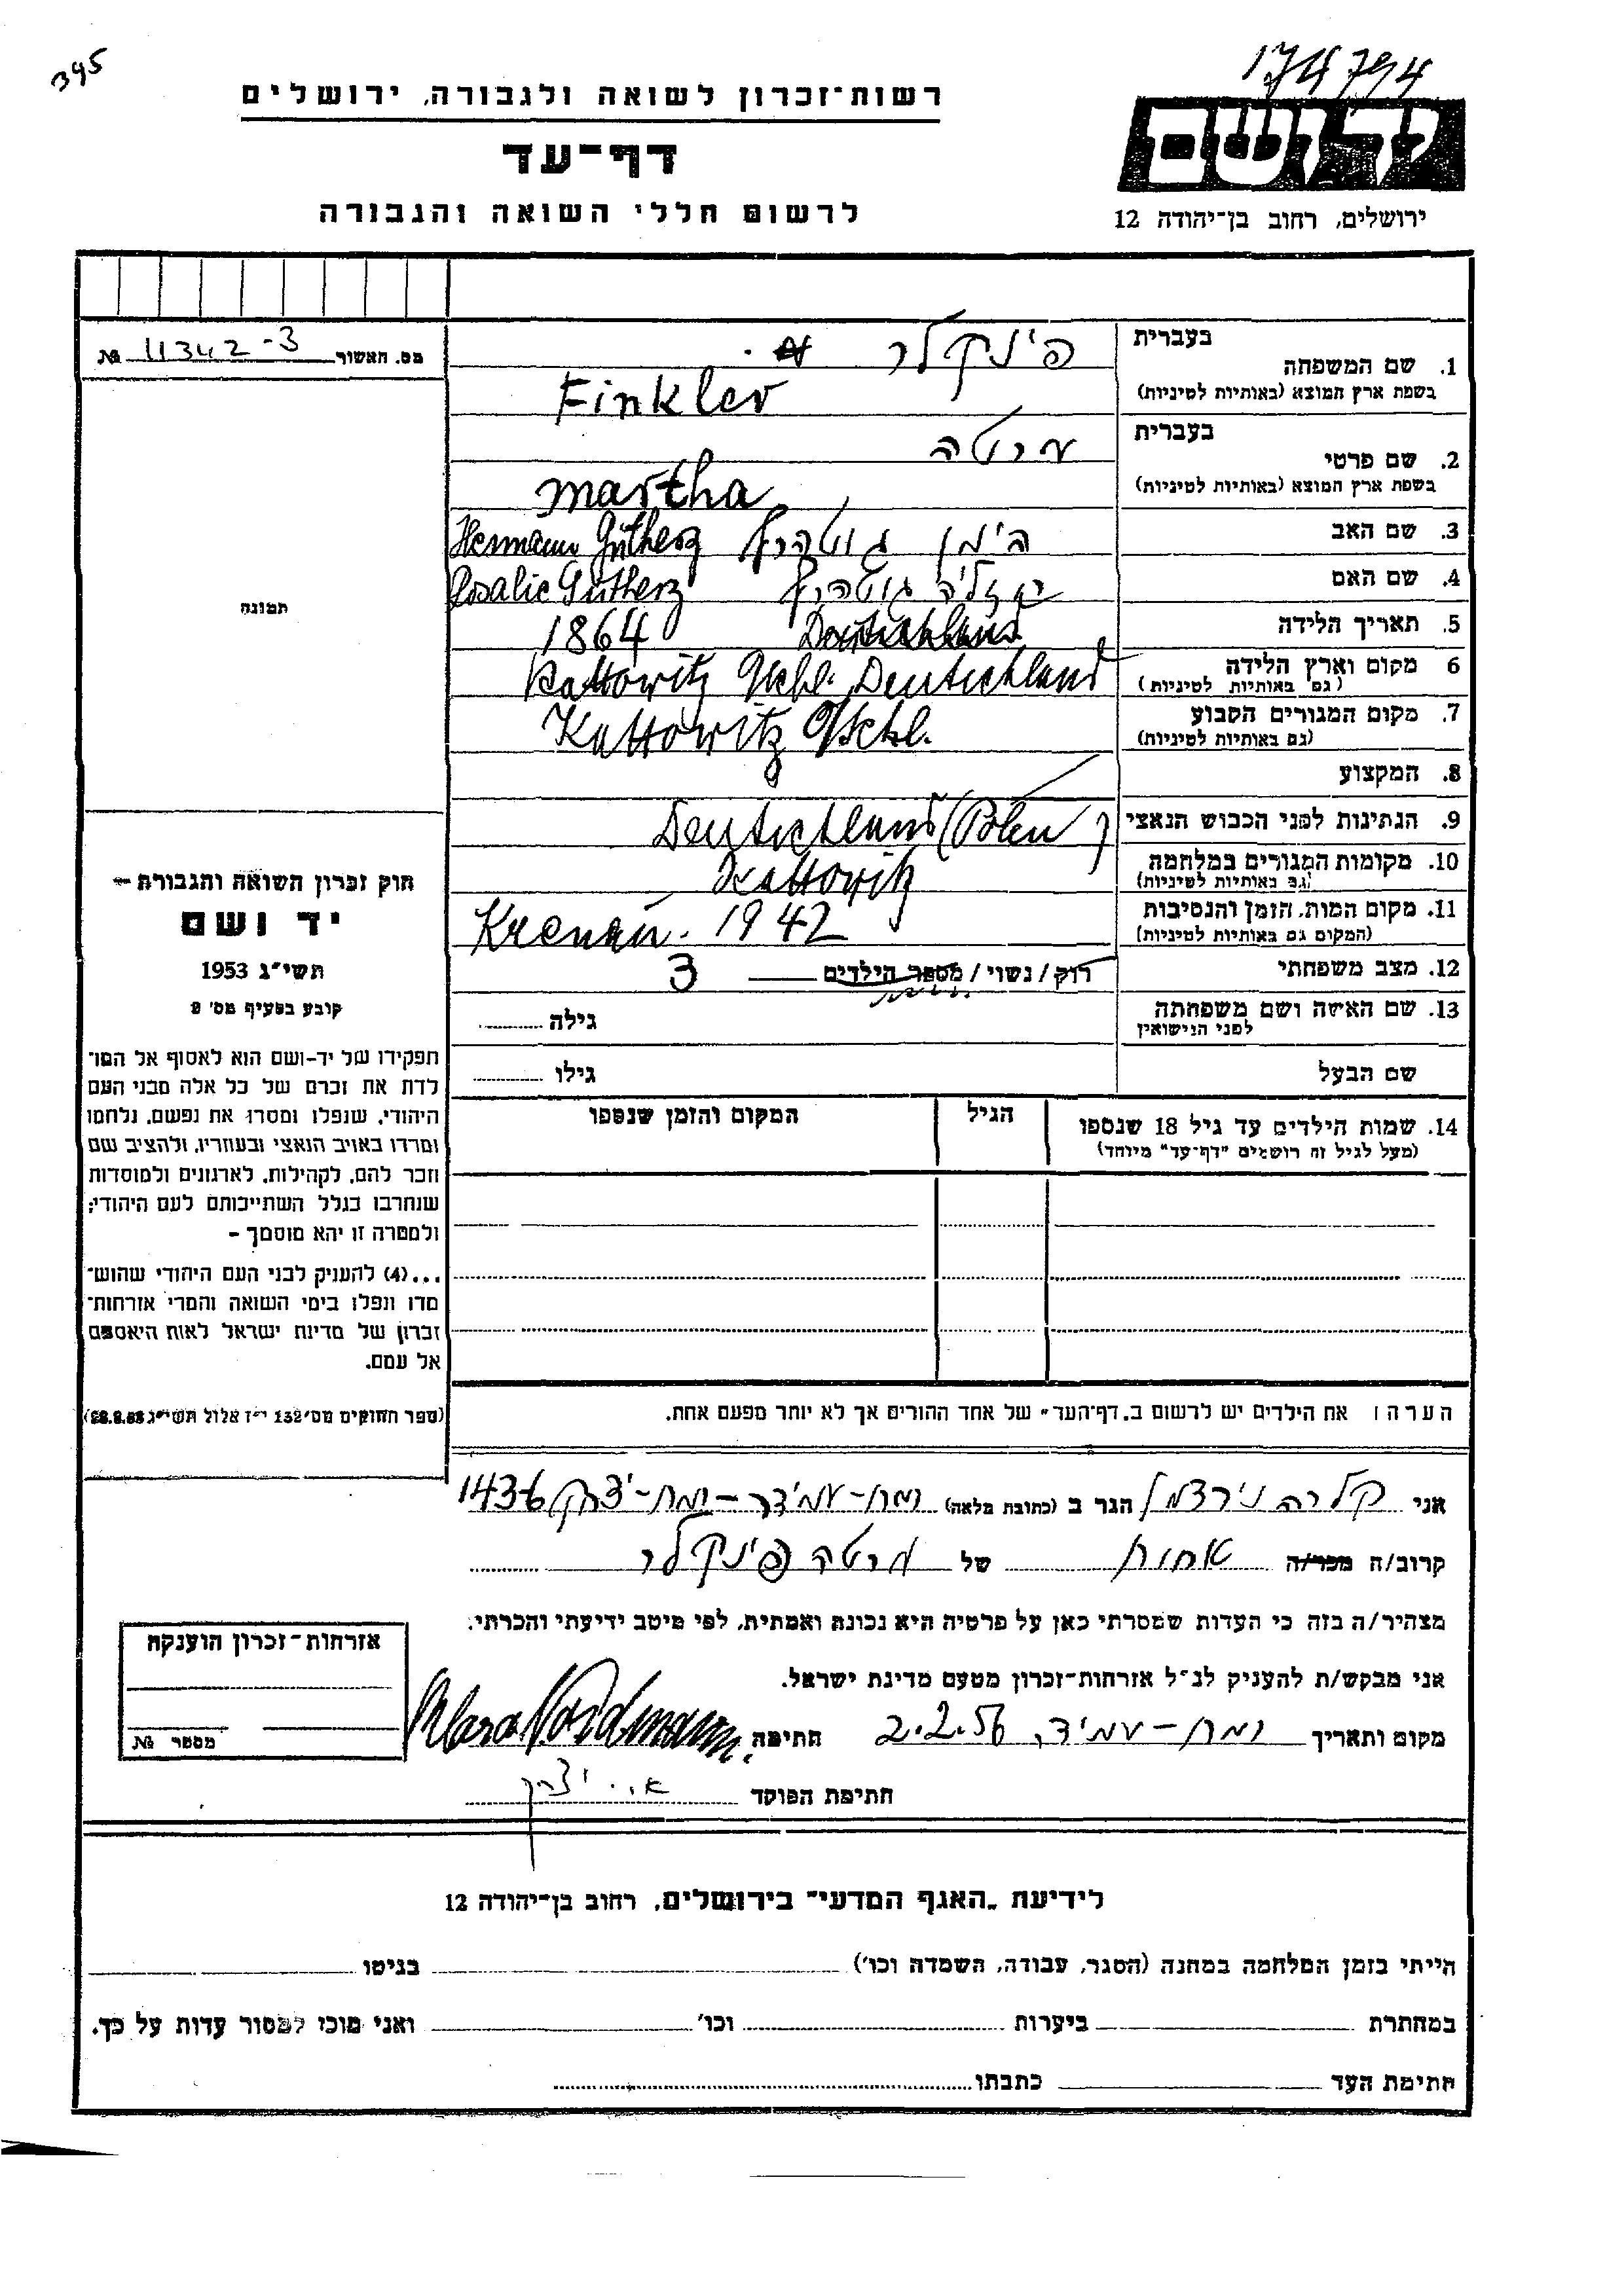 395
174794
רשות־זכרון לשואה ולגבורה, ירושלים
דף־עד
לרשום חללי השואה והגבורה
יד ושם
ירושלים, רחוב בן־יהודה 12
מס. האשור 11342-3 №
1. שם המשפחה בעברית פינקלר
בשפת ארץ המוצא (באותיות לטיניות) Finkler
2. שם פרטי בעברית מרטה
בשפת ארץ המוצא (באותיות לטיניות) Martha
3. שם האב הימן גוטהרץ Hermann Gutherz
4. שם האם רוזליה גוטהרץ Rosalie Gutherz
5. תאריך הלידה 1864 Deutschland
6 מקום וארץ הלידה (גם באותיות לטיניות) Kattowitz Oschl. Deutschland
7. מקום המגורים הקבוע (גם באותיות לטיניות) Kattowitz O/Schl.
8. המקצוע
9. הנתינות לפני הכבוש הנאצי Deutschland (Polen)
10. מקומות המגורים במלחמה (גם באותיות לטיניות) Kattowitz
11. מקום המות, הזמן והנסיבות (המקום גם באותיות לטיניות) Krenau. 1942
12. מצב משפחתי רוק/נשוי/מספר הילדים 3
13. שם האישה ושם משפחתה לפני הנישואין גילה
שם הבעל גילו
14. שמות הילדים עד גיל 18 שנספו הגיל המקום והזמן שנספו
(מעל לגיל זה רושמים "דף־עד" מיוחד)
תמונה
חוק זכרון השואה והגבורה –
יד ושם
תשי"ג 1953
קובע בסעיף מס' 2
תפקידו של יד-ושם הוא לאסוף אל המו־
לדת את זכרם של כל אלה מבני העם
היהודי, שנפלו ומסרו את נפשם, נלחמו
ומרדו באויב הנאצי ובעוזריו, ולהציב שם
וזכר להם, לקהילות, לארגונים ולמוסדות
שנחרבו בגלל השתייכותם לעם היהודי;
ולמטרה זו יהא מוסמך –
...(4) להעניק לבני העם היהודי שהוש־
מדו ונפלו בימי השואה והמרי אזרחות־
זכרון של מדינת ישראל לאות היאספם
אל עמם.
(ספר החוקים מס' 132 י"ז אלול תשי"ג 28.8.53)
הערה: את הילדים יש לרשום ב"דף־העד" של אחד ההורים אך לא יותר מפעם אחת.
אני קלרה נורדמן הגר ב (כתובת מלאה) רמת-עמידר-רמת-יצחק 1436
קרוב/ה מכר/ה אחות של מרטה פינקלר
מצהיר/ה בזה כי העדות שמסרתי כאן על פרטיה היא נכונה ואמתית, לפי מיטב ידיעתי והכרתי.
אני מבקש/ת להעניק לנ"ל אזרחות־זכרון מטעם מדינת ישראל.
מקום ותאריך רמת-עמידר, 2.2.56 חתימה Klara Nordmann.
חתימת הפוקד
אזרחות־זכרון הוענקה
מספר №
לידיעת "האגף המדעי" בירושלים, רחוב בן־יהודה 12
הייתי בזמן המלחמה במחנה (הסגר, עבודה, השמדה וכו') בגיטו
במחתרת ביערות וכו' ואני מוכן למסור עדות על כך.
חתימת העד כתבתו